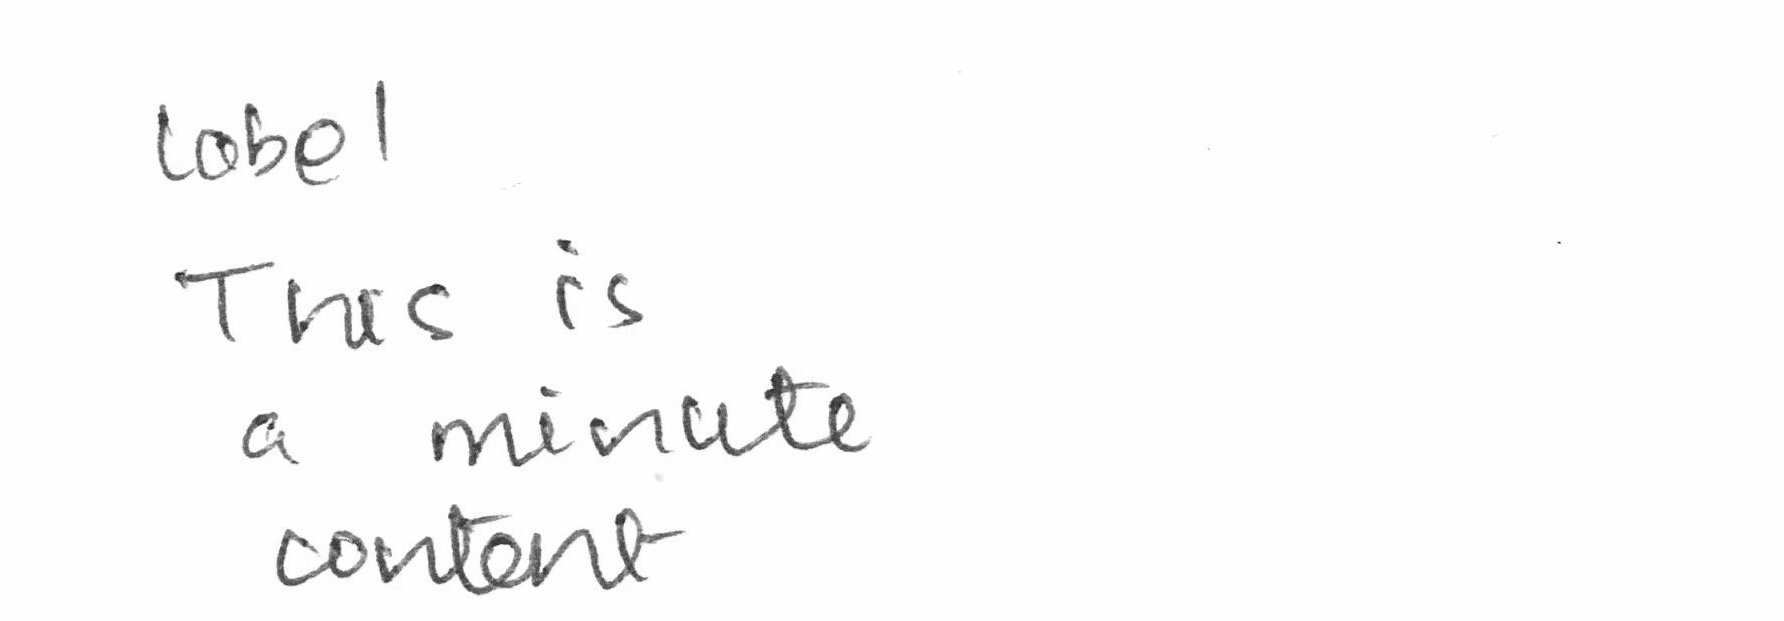 label
This is
a minute
content